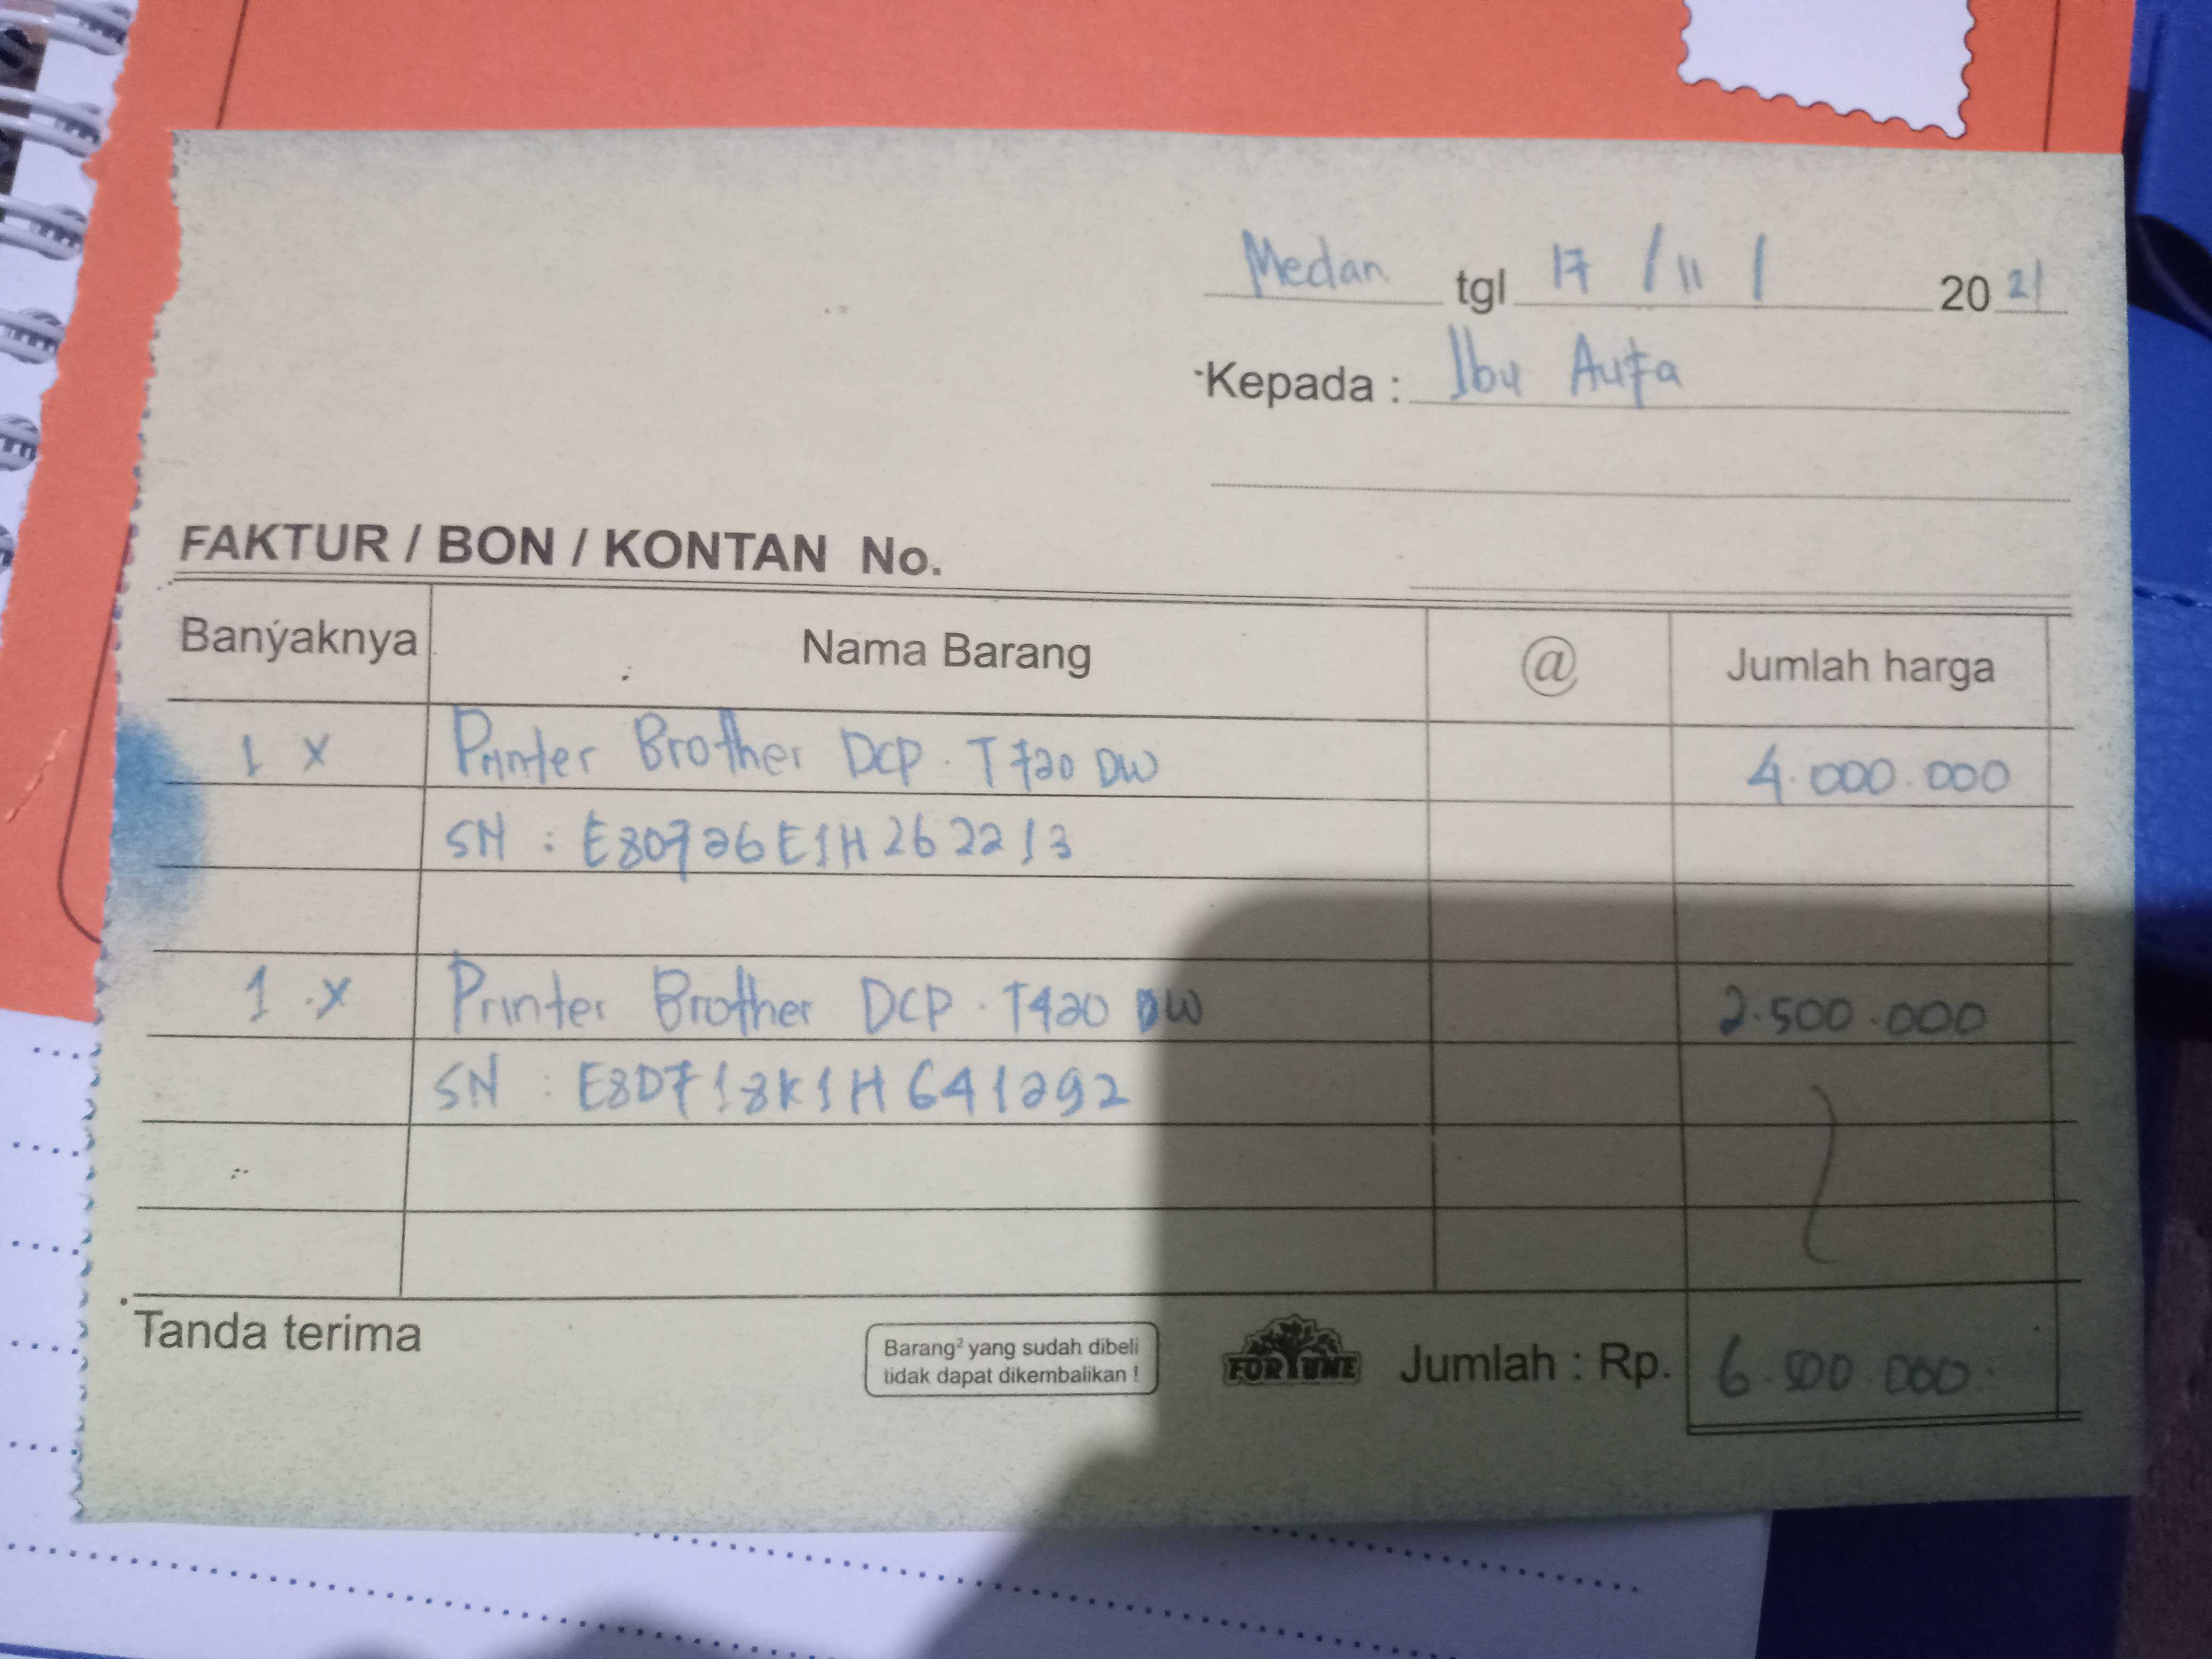 Medan tgl 17 / 11 / 2021
Kepada : Ibu Aufa
FAKTUR / BON / KONTAN No.
Banyaknya Nama Barang @ Jumlah harga
1 x Printer Brother DCP . T720 DW 4.000.000
SN : E80726E1H262213
1 x Printer Brother DCP . T420 DW 2.500.000
SN : E8D718K1H641292
Tanda terima
Barang² yang sudah dibeli
tidak dapat dikembalikan !
FORTUNE
Jumlah : Rp. 6.500.000